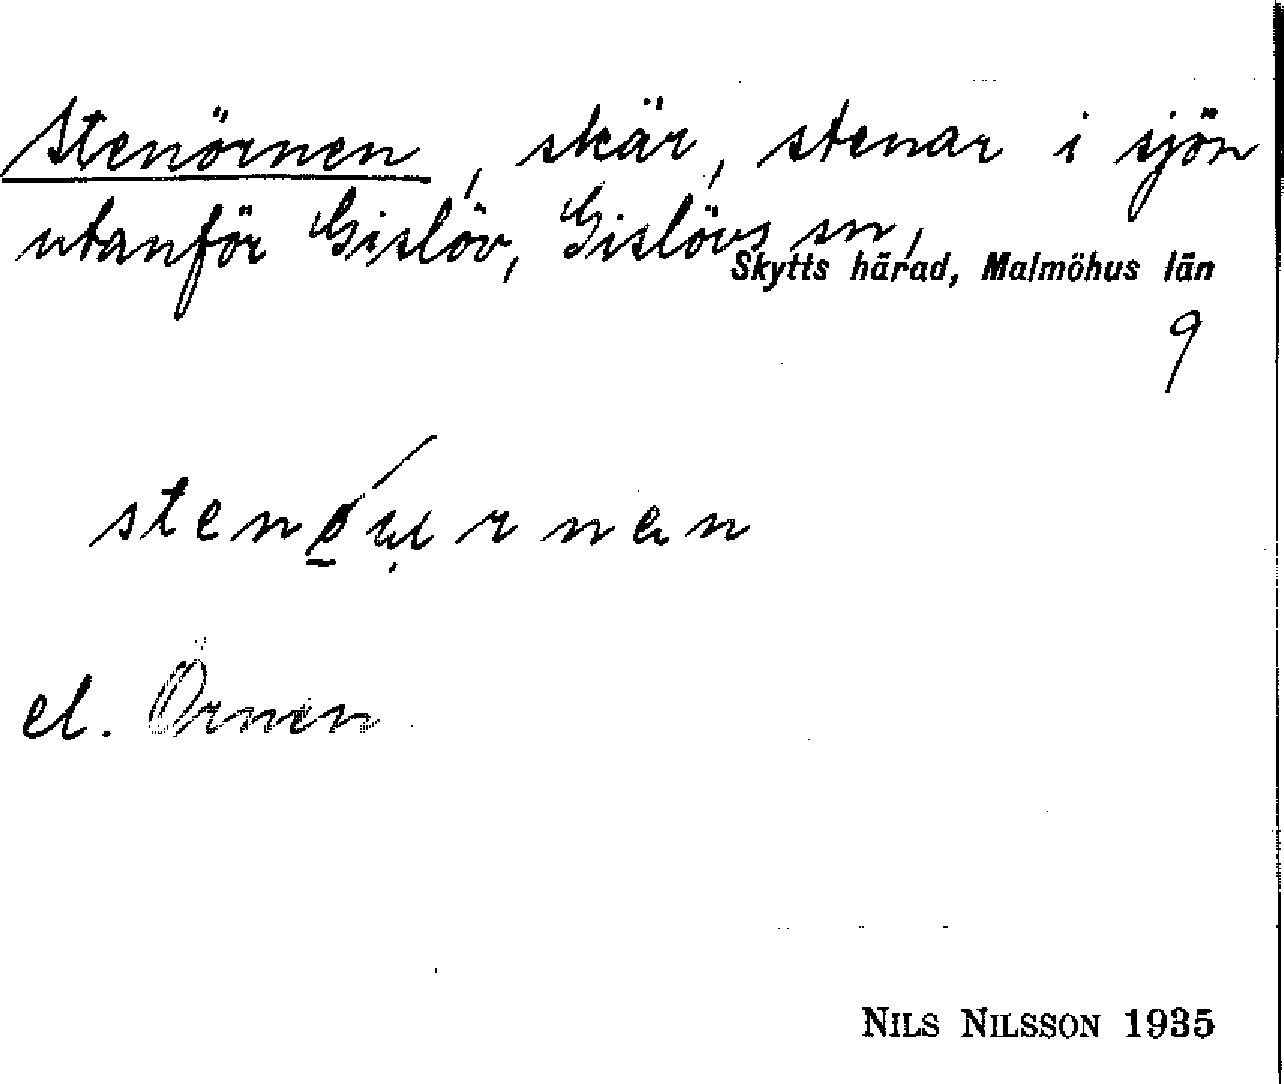 Stenörnen, skär, stenar i sjön
utanför Gislöv, Gislövs sn,
Skytts härad, Malmöhus län
9
el. Örnen
NILS NILSSON 1935